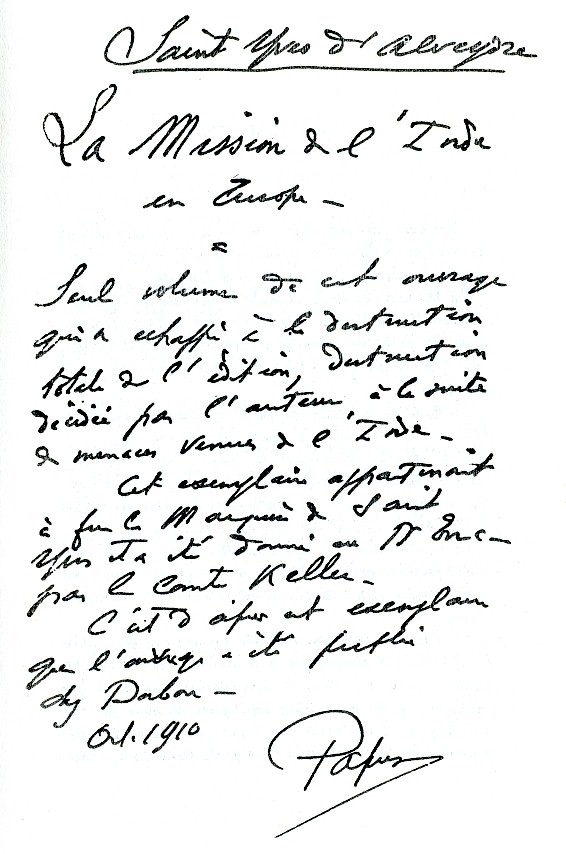 Saint Yves d'Alveydre
La Mission de l'Inde
en Europe —
=
Seul volume de cet ouvrage
qui a echappé à la destruction
totale de l'édition, destruction
décidée par l'auteur à la suite
de menaces venues de l'Inde —
Cet exemplaire appartenait
à feu le Marquis de Saint
Yves et a été donné au Dr Enc—
par le Comte Keller —
C'est d'après cet exemplaire
que l'ouvrage a été publié
chez Dorbon —
Oct. 1910
Papus